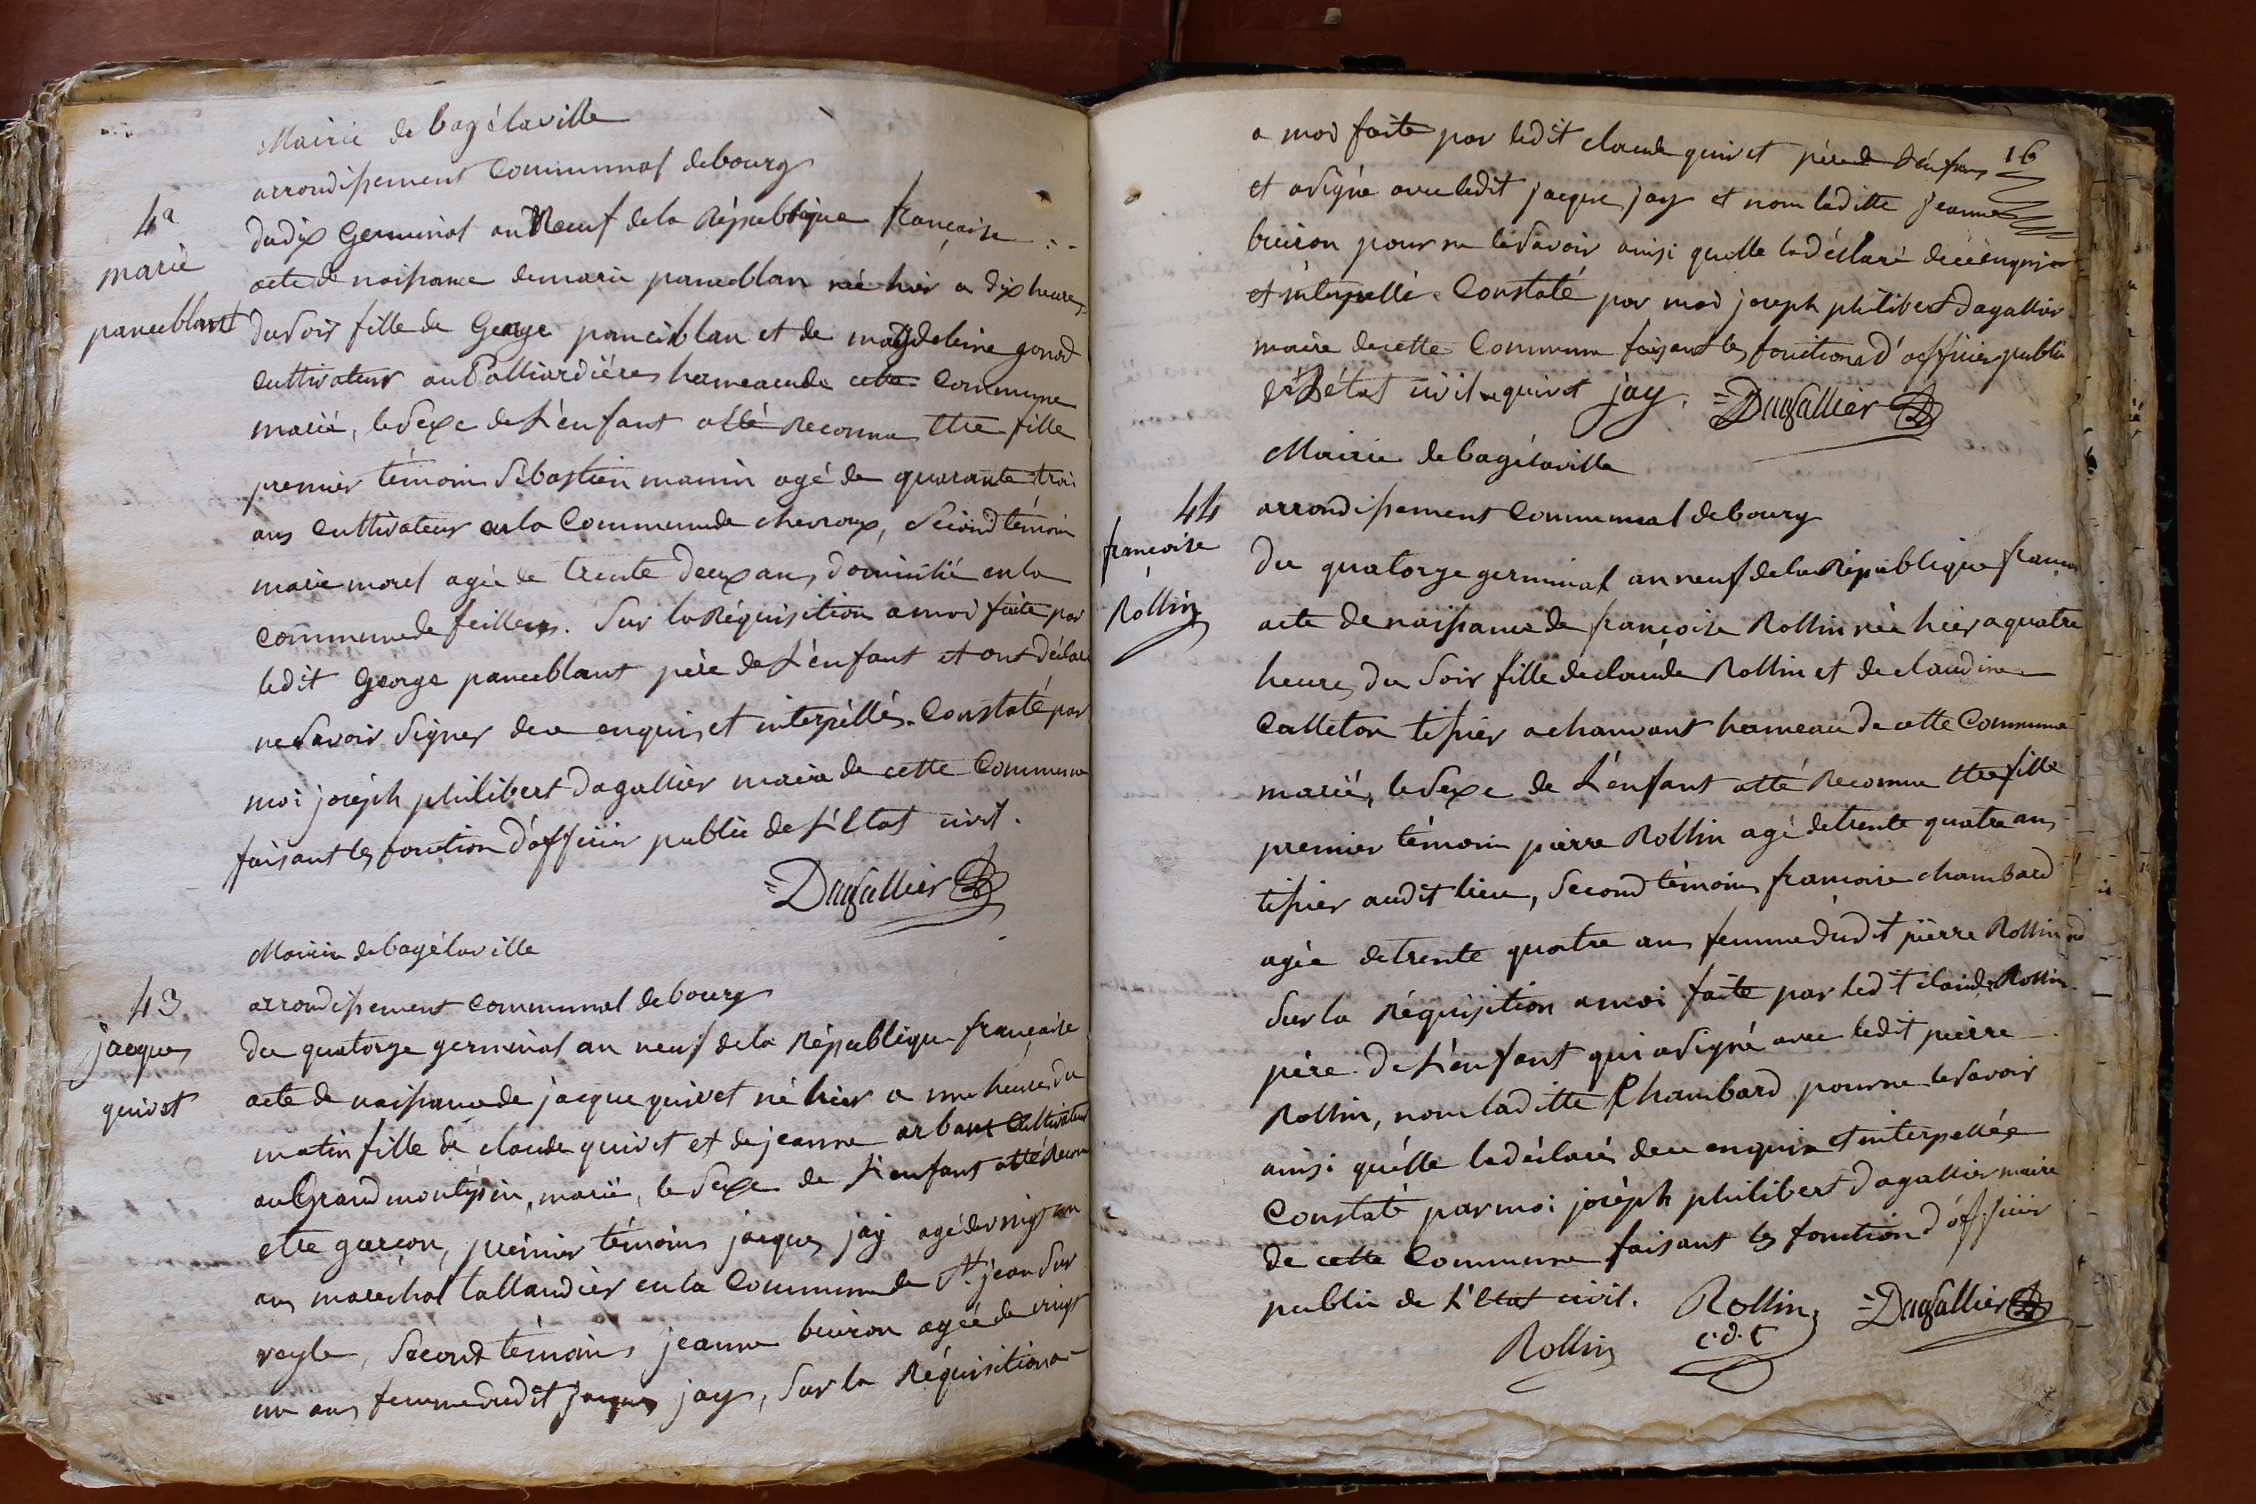 Mairie de bagélaville
arrondissement Communal debourg
42
marie
panceblant
dudix Germinal an Neuf dela République française
acte de naissance demarie panceblan née hier a dix heures
dusoir fille de George panceblan et de magdeleine gonod
cultivateur au Palliardières hameaude cette Commune
marié, lesexe deL'enfant atté Reconnu ttre fille
premier témoin Sébastien manin agé de quarante trois
ans cultivateur enla Communede chevroux, Second témoin
marie morel agée de trente deux ans, domicilié enla
communede feillens. Sur la Réquisition amoi faite par
ledit George panceblant père deL'énfant et ont déclaré
nesavoir signer dece enquis et interpéllés. Constaté par
moi joséph philibert dagallier maire de cette Commune
faisant les fonction d'officier public deL'Etat civil.
Dagallier
Mairie debagélaville
43
jacques
quivet
arrondissement communal debourg
du quatorze germinal an neuf dela République française
acte de naissancede jacque quivet né hier a une heure du
matin fille de claude quivet et dejeanne arbant Cultivateur
au Grand montépin, marié, le Sexe de L'enfant atté Reconnu
etre garcon, prémier témoin jacques jay agé de vingt un
ans maréchal tallandier enla Commune de St. jean Sur
reyle, Second témoin jeanne buiron agée de vingt
un ans femmedudit jacques jay, Sur la Réquisition a
16
a moi faite par ledit claude quivet père de L'énfans
et asigné avec ledit jacque jay et nom laditte jeanne
buiron pour ne lesavoir ainsi quelle ladéclaré decé enquise
et intérpellé. Constaté par moi joseph philibert Dagallier
maire decette Commune faisant les fonctions d'officier public
de L'état civil quivet jay. Dagallier
Mairie de bagélaville
44
françoise
Rollin
arrondissement Communal debourg
Du quatorze germinal an neuf dela République franç
acte denaissance de françoise Rollin née hier a quatre
heures du Soir fille declaude Rollin et declaudine
Calleton tissier achanvant hameau de cette Commune
marié, lesexe de L'énfant atté Reconnu ttre fille
premier témoin pierre Rollin agé detrente quatre ans
tissier audit lieu, Second témoin francoise chambard
agée detrente quatre ans femme dudit pierre Rollin
Sur la Réquisition amoi faite par ledit claude Rollin
père deL'énfant qui asigné avec ledit pierre
Rollin, nom laditte Chambard pourne lesavoir
ainsi qu'élle ladéclaré dece enquise et interpellée
Constaté parmoi joséph philibert dagallier maire
de cette Commune faisant les fonction d'officier
public de L'Etat civil. Rollin Dagallier
Rollin c.d.t